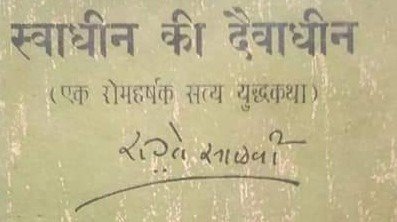 स्वाधीन की दैवाधीन
(एक रोमहर्षक सत्य युद्धकथा)
साळवी